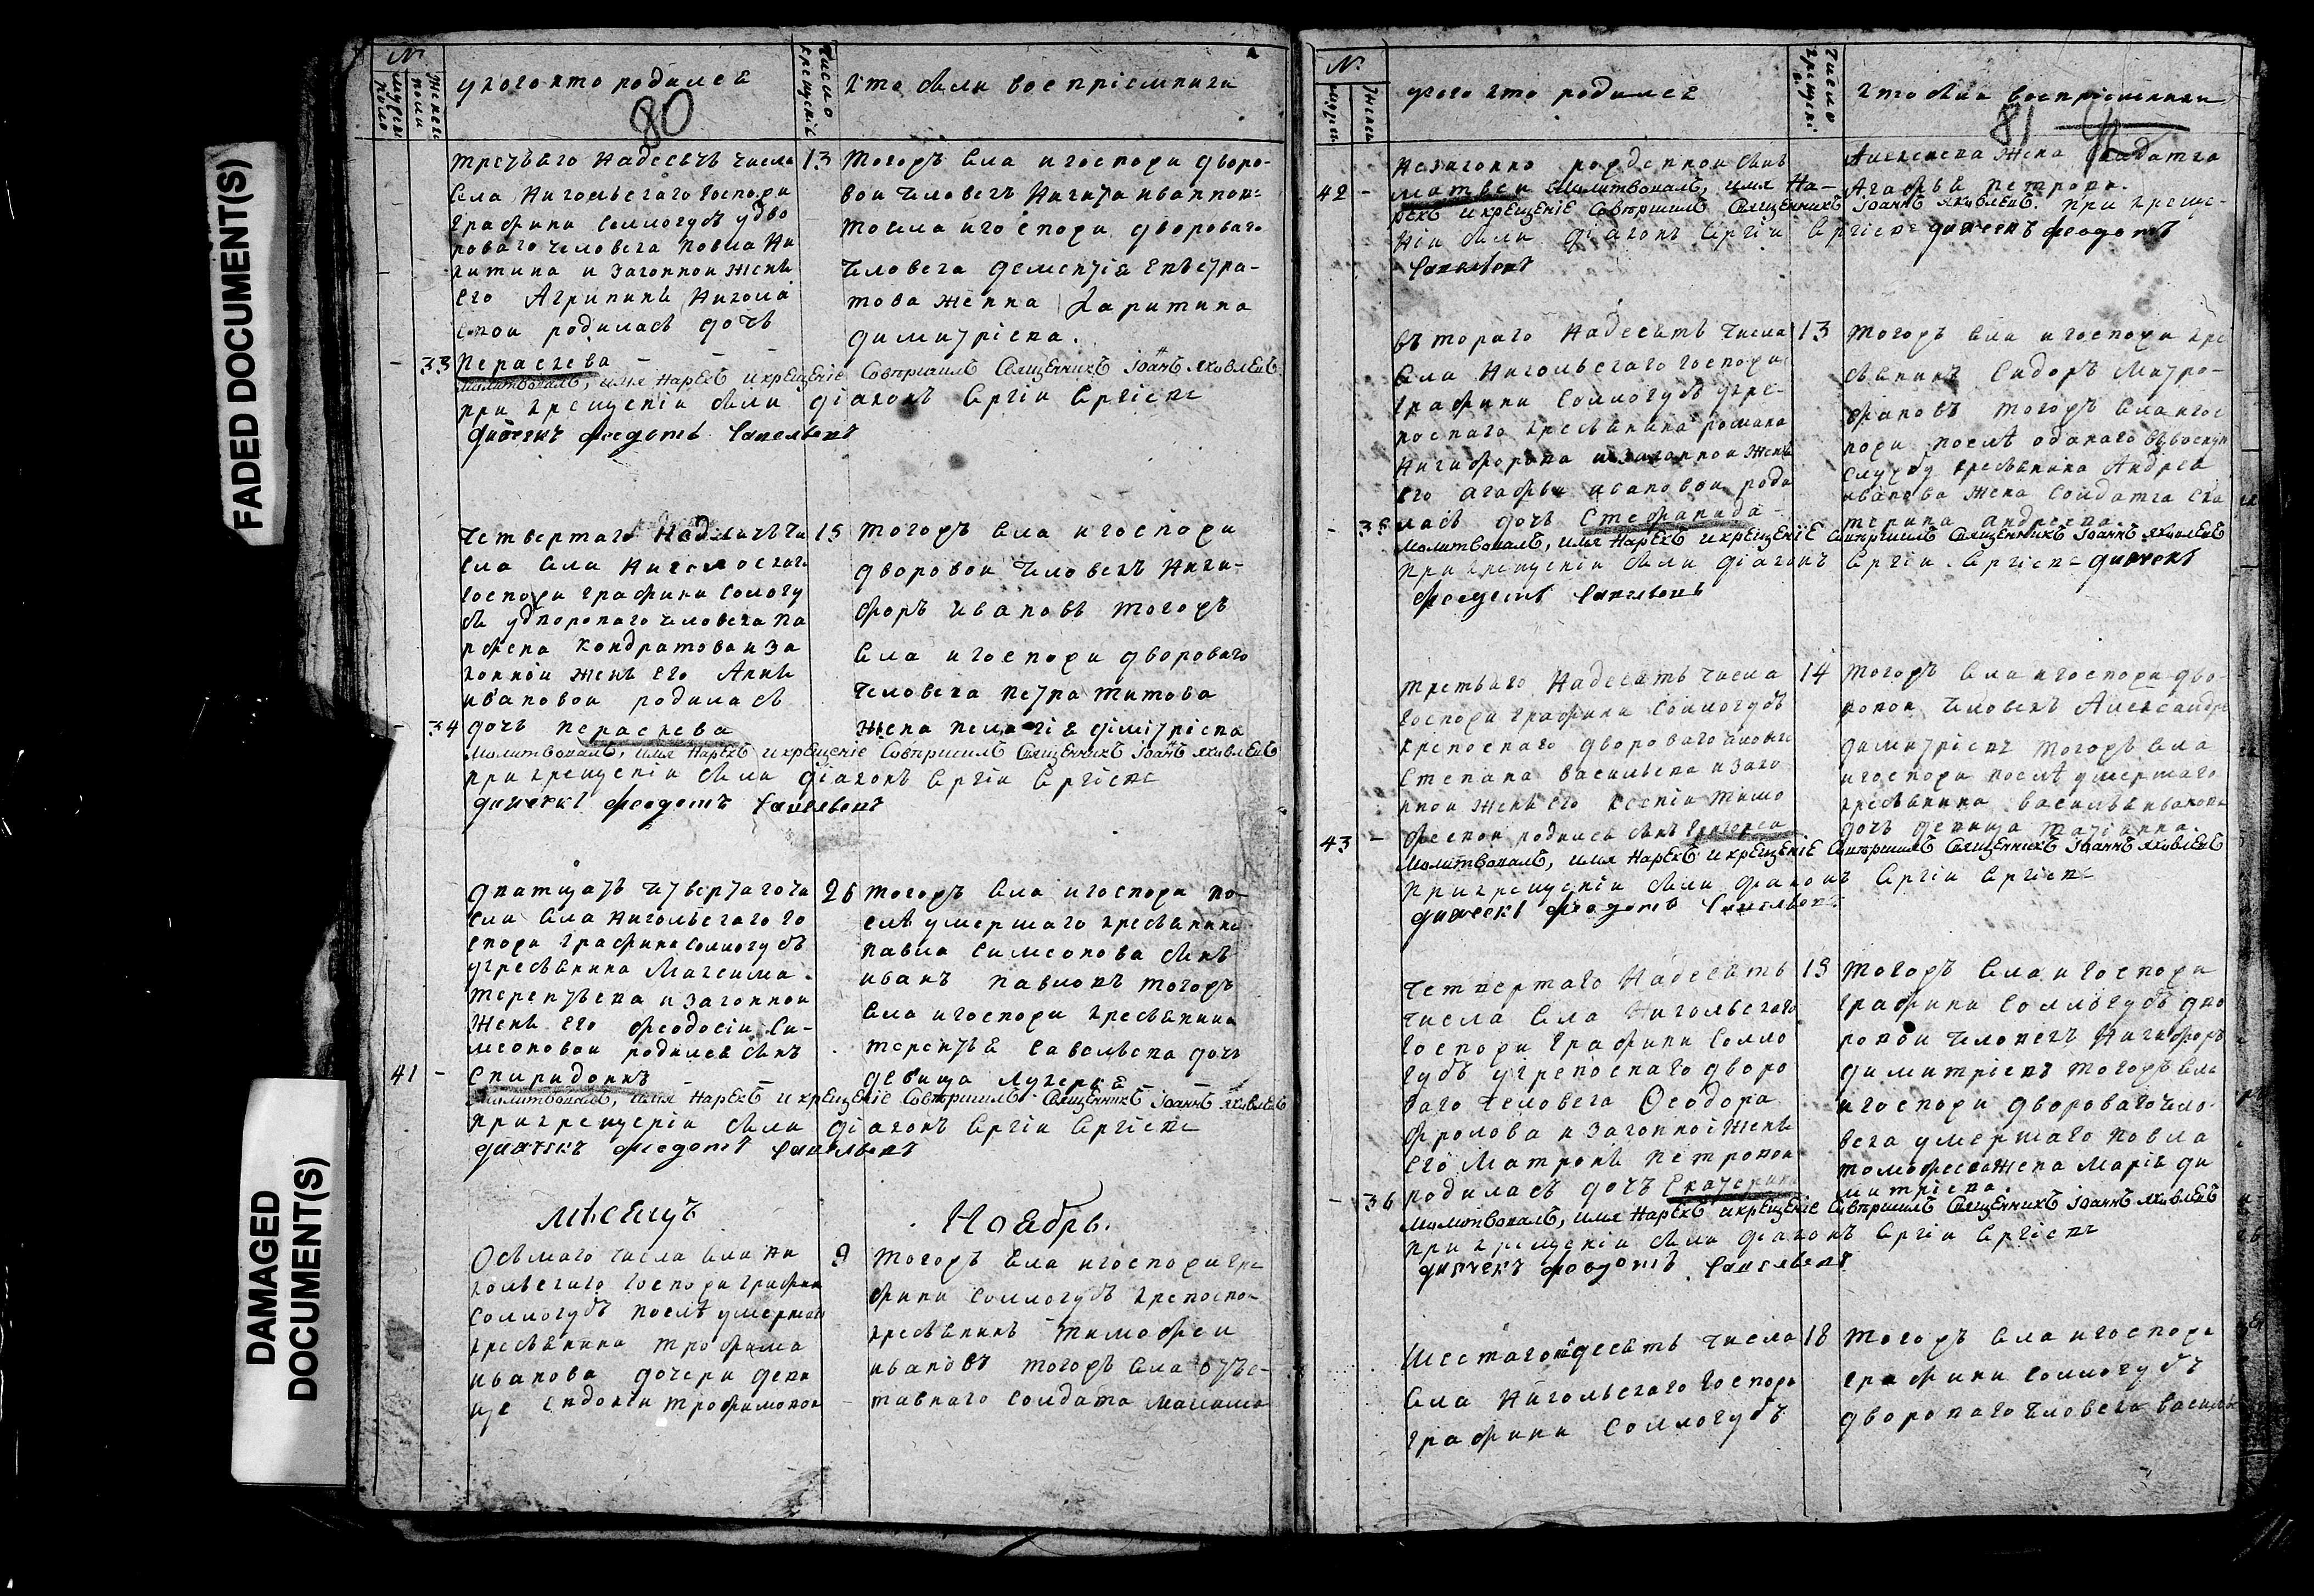 FADED DOCUMENT(S)
DAMAGED
DOCUMENT(S)
№
мужеска полу
женска полу
у кого кто родился
число крещения
кто были восприемники
80
третьяго надесять числа
села Никольскаго госпожи
графини Соллогубъ у дво
роваго человека Павла Ни
китина и законной жены
его Агрипины Никола
евой родилась дочь
33 Параскева
13
тогожъ села и госпожи дворо-
вой человекъ Никита Иванновъ
тоже села и госпожи двороваго
человека Дементия Евъстра-
това женна Харитина
Димитріева.
молитвовалъ, имя нарекъ и крещеніе совершилъ священникъ Іоаннъ Яковлевъ
при крещеніи были діаконъ Сергіи Сергіевъ
дьячекъ Федотъ Савельевъ
четвертаго надесять чи
сла села Никольскаго
госпожи графини Сологу
бъ у двороваго человека Па
рфена Кондратова и за
конной жены его Анны
Ивановой родилась
34 дочь Параскева
15
тогожъ села и госпожи
дворовой человекъ Ники-
форъ Ивановъ тогожъ
села и госпожи двороваго
человека Петра Титова
жена Пелагія Дімітріева
молитвовалъ, имя нарекъ и крещеніе совершилъ священникъ Іоаннъ Яковлевъ
при крещеніи были діаконъ Сергіи Сергіевъ
дьячекъ Феодотъ Савельевъ
дватцать четвертаго чи
сла села Никольскаго го
спожи графини Соллогубъ
у крестьянина Максима
Терентьева и законной
жены его Феодосіи Си-
меоновой родился сынъ
41 - Спиридонъ
26
тогожъ села и госпожи по-
слѣ умершаго крестьянина
Павла Симеонова сынъ
Иванъ Павловъ тогожъ
села и госпожи крестьянина
Терентья Савельева дочь
девица Лукерья
молитвовалъ, имя нарекъ и крещеніе совершилъ священникъ Іоаннъ Яковлевъ
при крещеніи были діаконъ Сергіи Сергіевъ
дьячекъ Федотъ Савельевъ
мѣсяцъ Ноябрь.
Осьмаго числа села Ни
кольскаго госпожи графин
Соллогубъ послѣ умершаго
крестьянина Трофима
Иванова дочери деви
це Евдокіи Трофимовой
9
тогожъ села и госпожи гра
фини Соллогубъ крепосно-
крестьянинъ Тимофеи
Ивановъ тогожъ села отъс-
тавнаго солдата
№
мужеск
женск
у кого кто родился
число крещені
кто были восприемники
81
незаконно рожденной сынъ
42 - Матвеи молитвовалъ, имя на-
рекъ и крещеніе совершилъ священникъ Іоаннъ Яковлевъ. при креще-
ніи были діаконъ Сергіи Сергіевъ дьячекъ Феодотъ
Савельевъ
Алексеева жена солдатка
Агафья Петрова.
вътораго надесять числа
села Никольскаго госпожи
графини Соллогубъ у кре-
поснаго крестьянина Романа
Никифорова и законной жены
его Агафьи Ивановой роди
35 лась дочь Стефанида
13
тогожъ села и госпожи кре
стьянинъ Сидоръ Митро-
фановъ тогожъ села и гос
пожи послѣ отданаго въ военную
службу крестьянина Андрея
Иванова жена солдатка Ека
терина Андреева.
молитвовалъ, имя нарекъ и крещеніе совершилъ священникъ Іоаннъ Яковлевъ
при крещеніи были діаконъ Сергіи Сергіевъ дьячекъ
Феодотъ Савельевъ
третьяго надесять числа
госпожи графини Соллогубъ
крепоснаго двороваго человека
Степана Васильева и зако
нной жены его Ксеніи Тимо
43 - феевой родился сынъ Григореи
14
тогожъ села и госпожи дво-
ровой человекъ Александръ
Димитріевъ тогожъ села
и госпожи послѣ умершаго
крестьянина Василья Иванова
дочь девица Татіанна.
молитвовалъ, имя нарекъ и крещеніе совершилъ священникъ Іоаннъ Яковлевъ
при крещеніи были діаконъ Сергіи Сергіевъ
дьячекъ Феодотъ Савельевъ
четвертаго надесять
числа села Никольскаго
госпожи графини Солло
губъ у крепоснаго дворо
ваго человека Феодора
Фролова и законной жены
его Матроны Петровой
36 родилась дочь Екатерина
15
тогожъ села и госпожи
графини Соллогубъ дво
ровой человекъ Никифоръ
Димитріевъ тогожъ села
и госпожи двороваго чело-
века умершаго Павла
Тимофеева жена Марія Ди
митріева.
молитвовалъ, имя нарекъ и крещеніе совершилъ священникъ Іоаннъ Яковлевъ
при крещеніи были діаконъ Сергіи Сергіевъ
дьячекъ Феодотъ Савельевъ
шестаго надесять числа
села Никольскаго госпожи
графини Соллогубъ
18
тогожъ села и госпожи
графини Соллогубъ
двороваго человека Василья